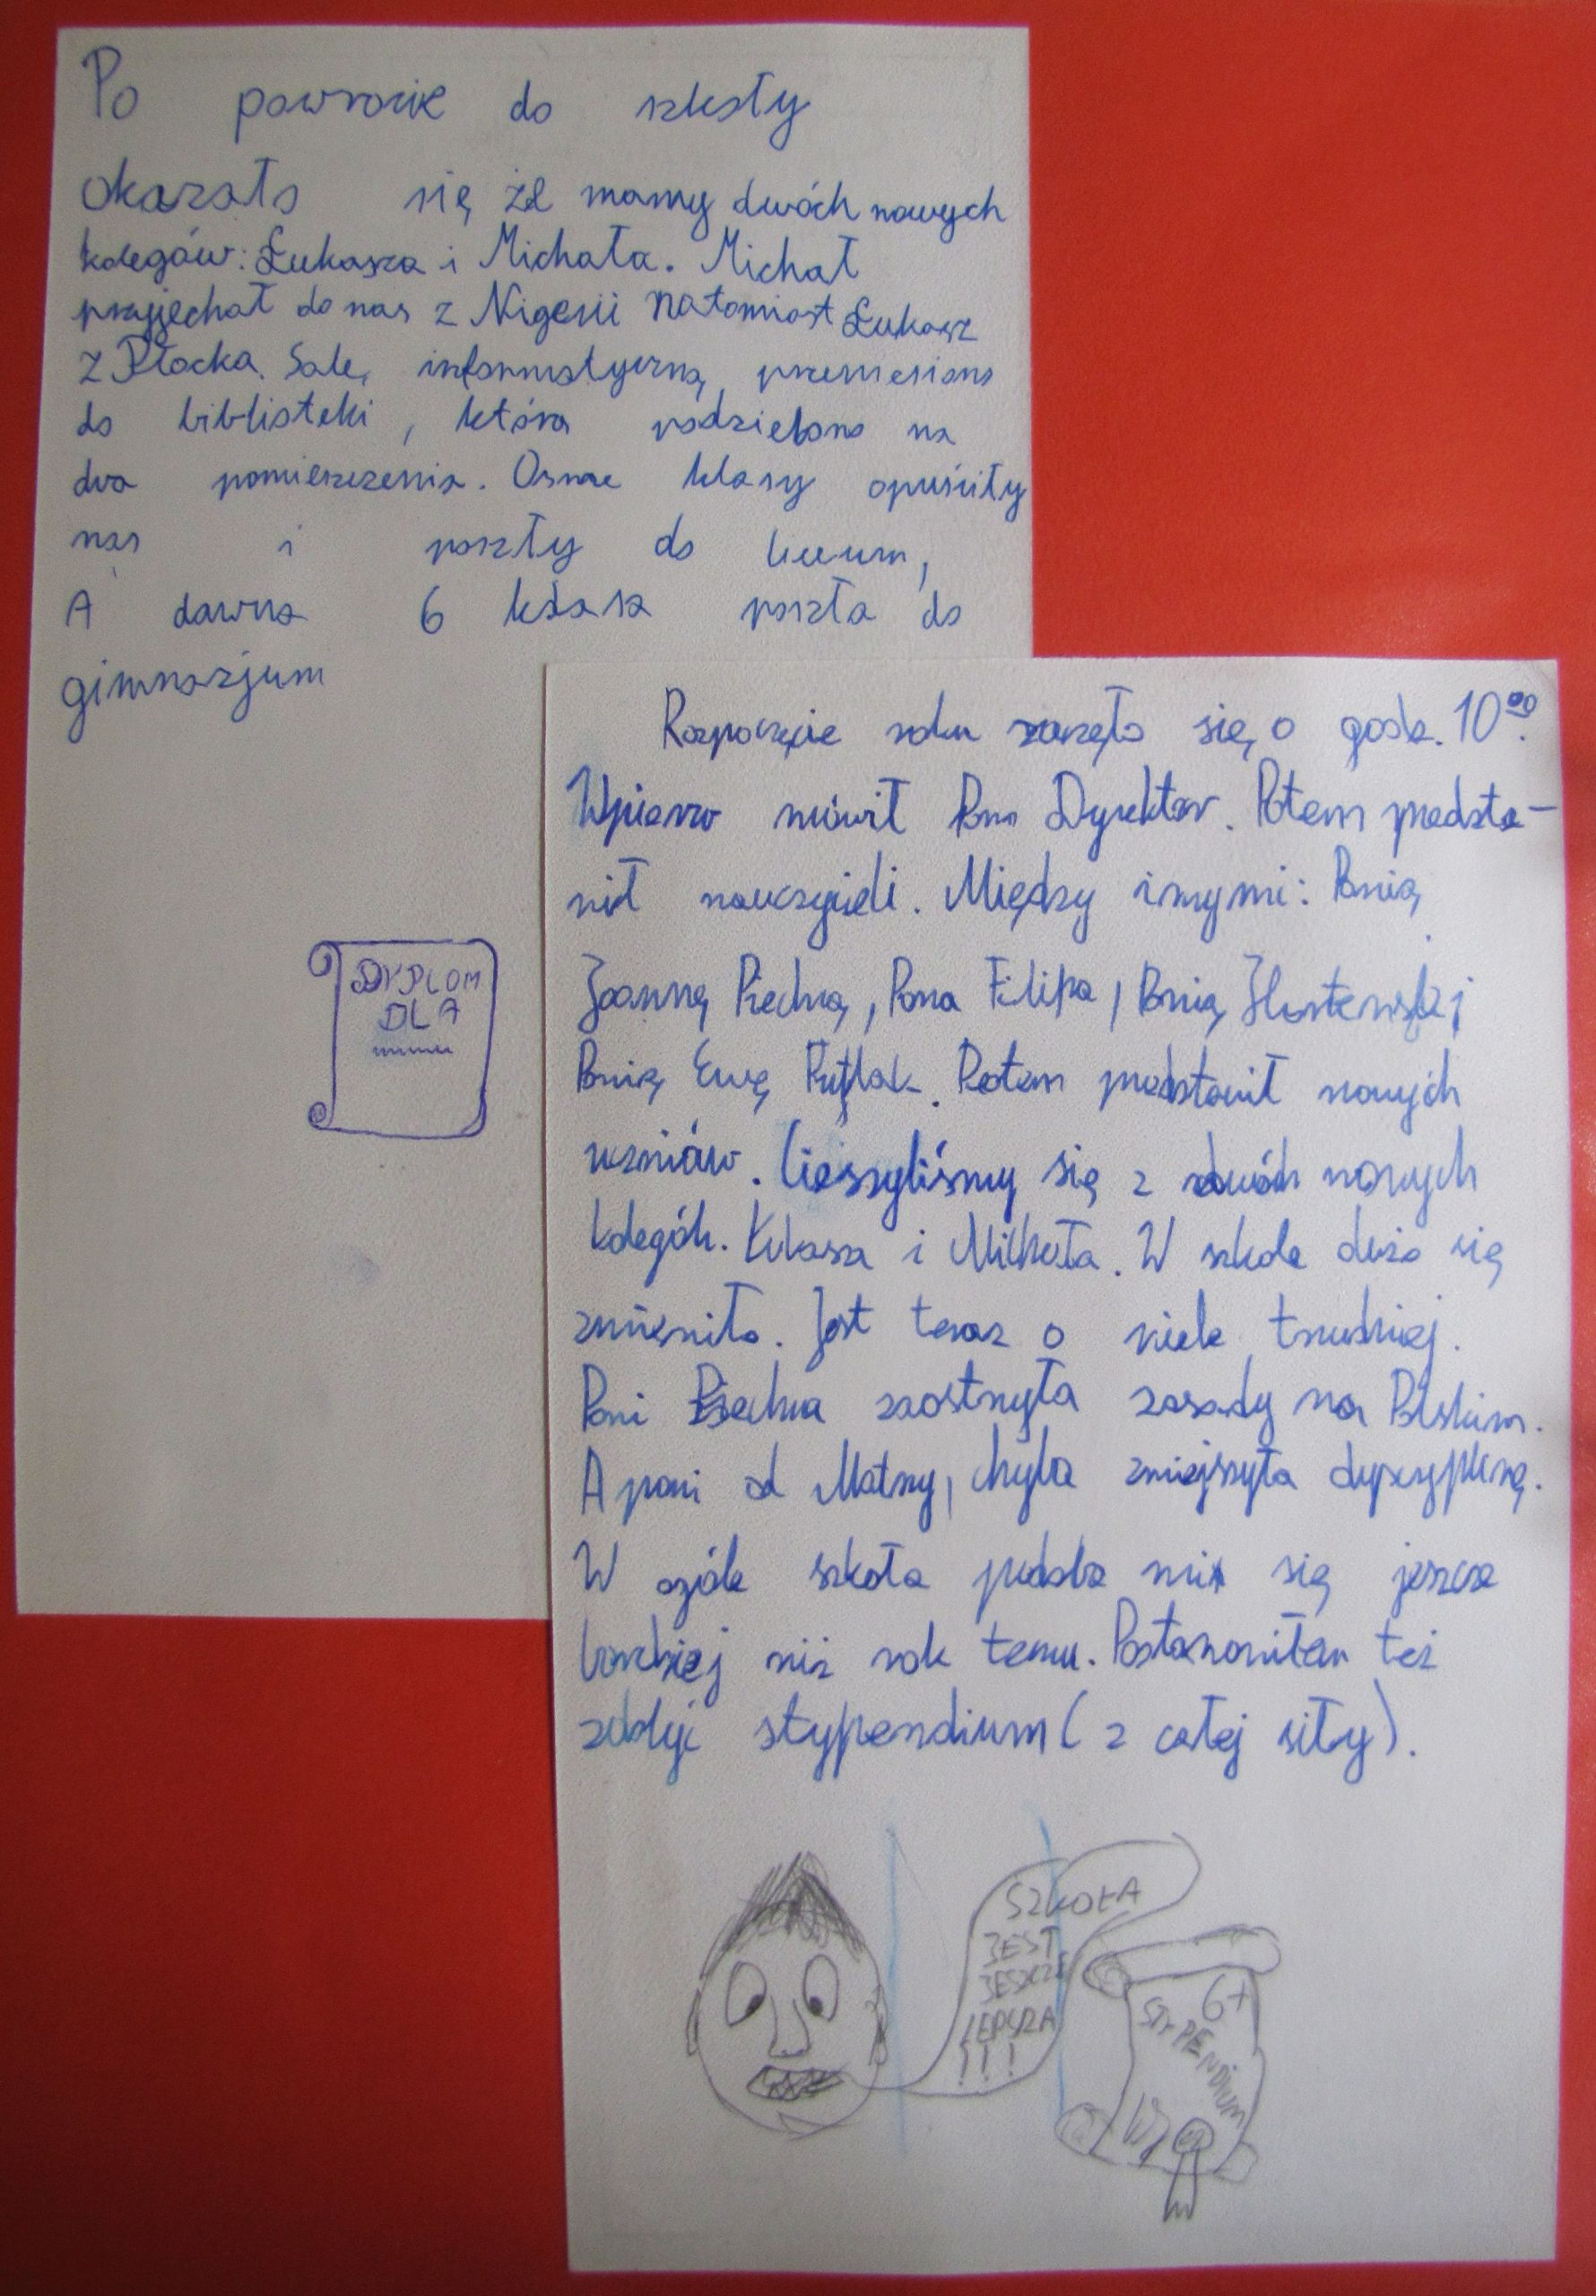 Po powrocie do szkoły
okazało się że mamy dwóch nowych
kolegów: Łukasza i Michała. Michał
przyjechał do nas z Nigerii natomiast Łukasz
z Płocka. Salę informatyczną przeniesiono
do biblioteki, która podzielono na
dwa pomieszczenia. Osme klasy opuściły
nas i poszły do liceum,
A dawna 6 klasa poszła do
gimnazjum
DYPLOM
DLA
Rozpoczęcie roku zaczęło się o godz. 10⁰⁰.
Wpierw mówił Pan Dyrektor. Potem przedsta-
wił nauczycieli. Między innymi: Panią
Joannę Piechną, Pana Filipa, Panią
Panią Ewę. Potem przedstawił nowych
uczniów. Cieszyliśmy się z dwóch nowych
kolegów. Łukasza i Michała. W szkole dużo się
zmieniło. Jest teraz o wiele trudniej.
Pani Piechna zaostrzyła zasady na Polskim.
A pani od Matmy, chyba zmiejszyła dyscyplinę.
W ogóle szkoła podoba mi się jeszcze
bardziej niż rok temu. Postanowiłem też
zdobyć stypendium (z całej siły).
SZKOŁA
JEST
JESZCZE
LEPSZA
!!!
6+
STYPENDIUM